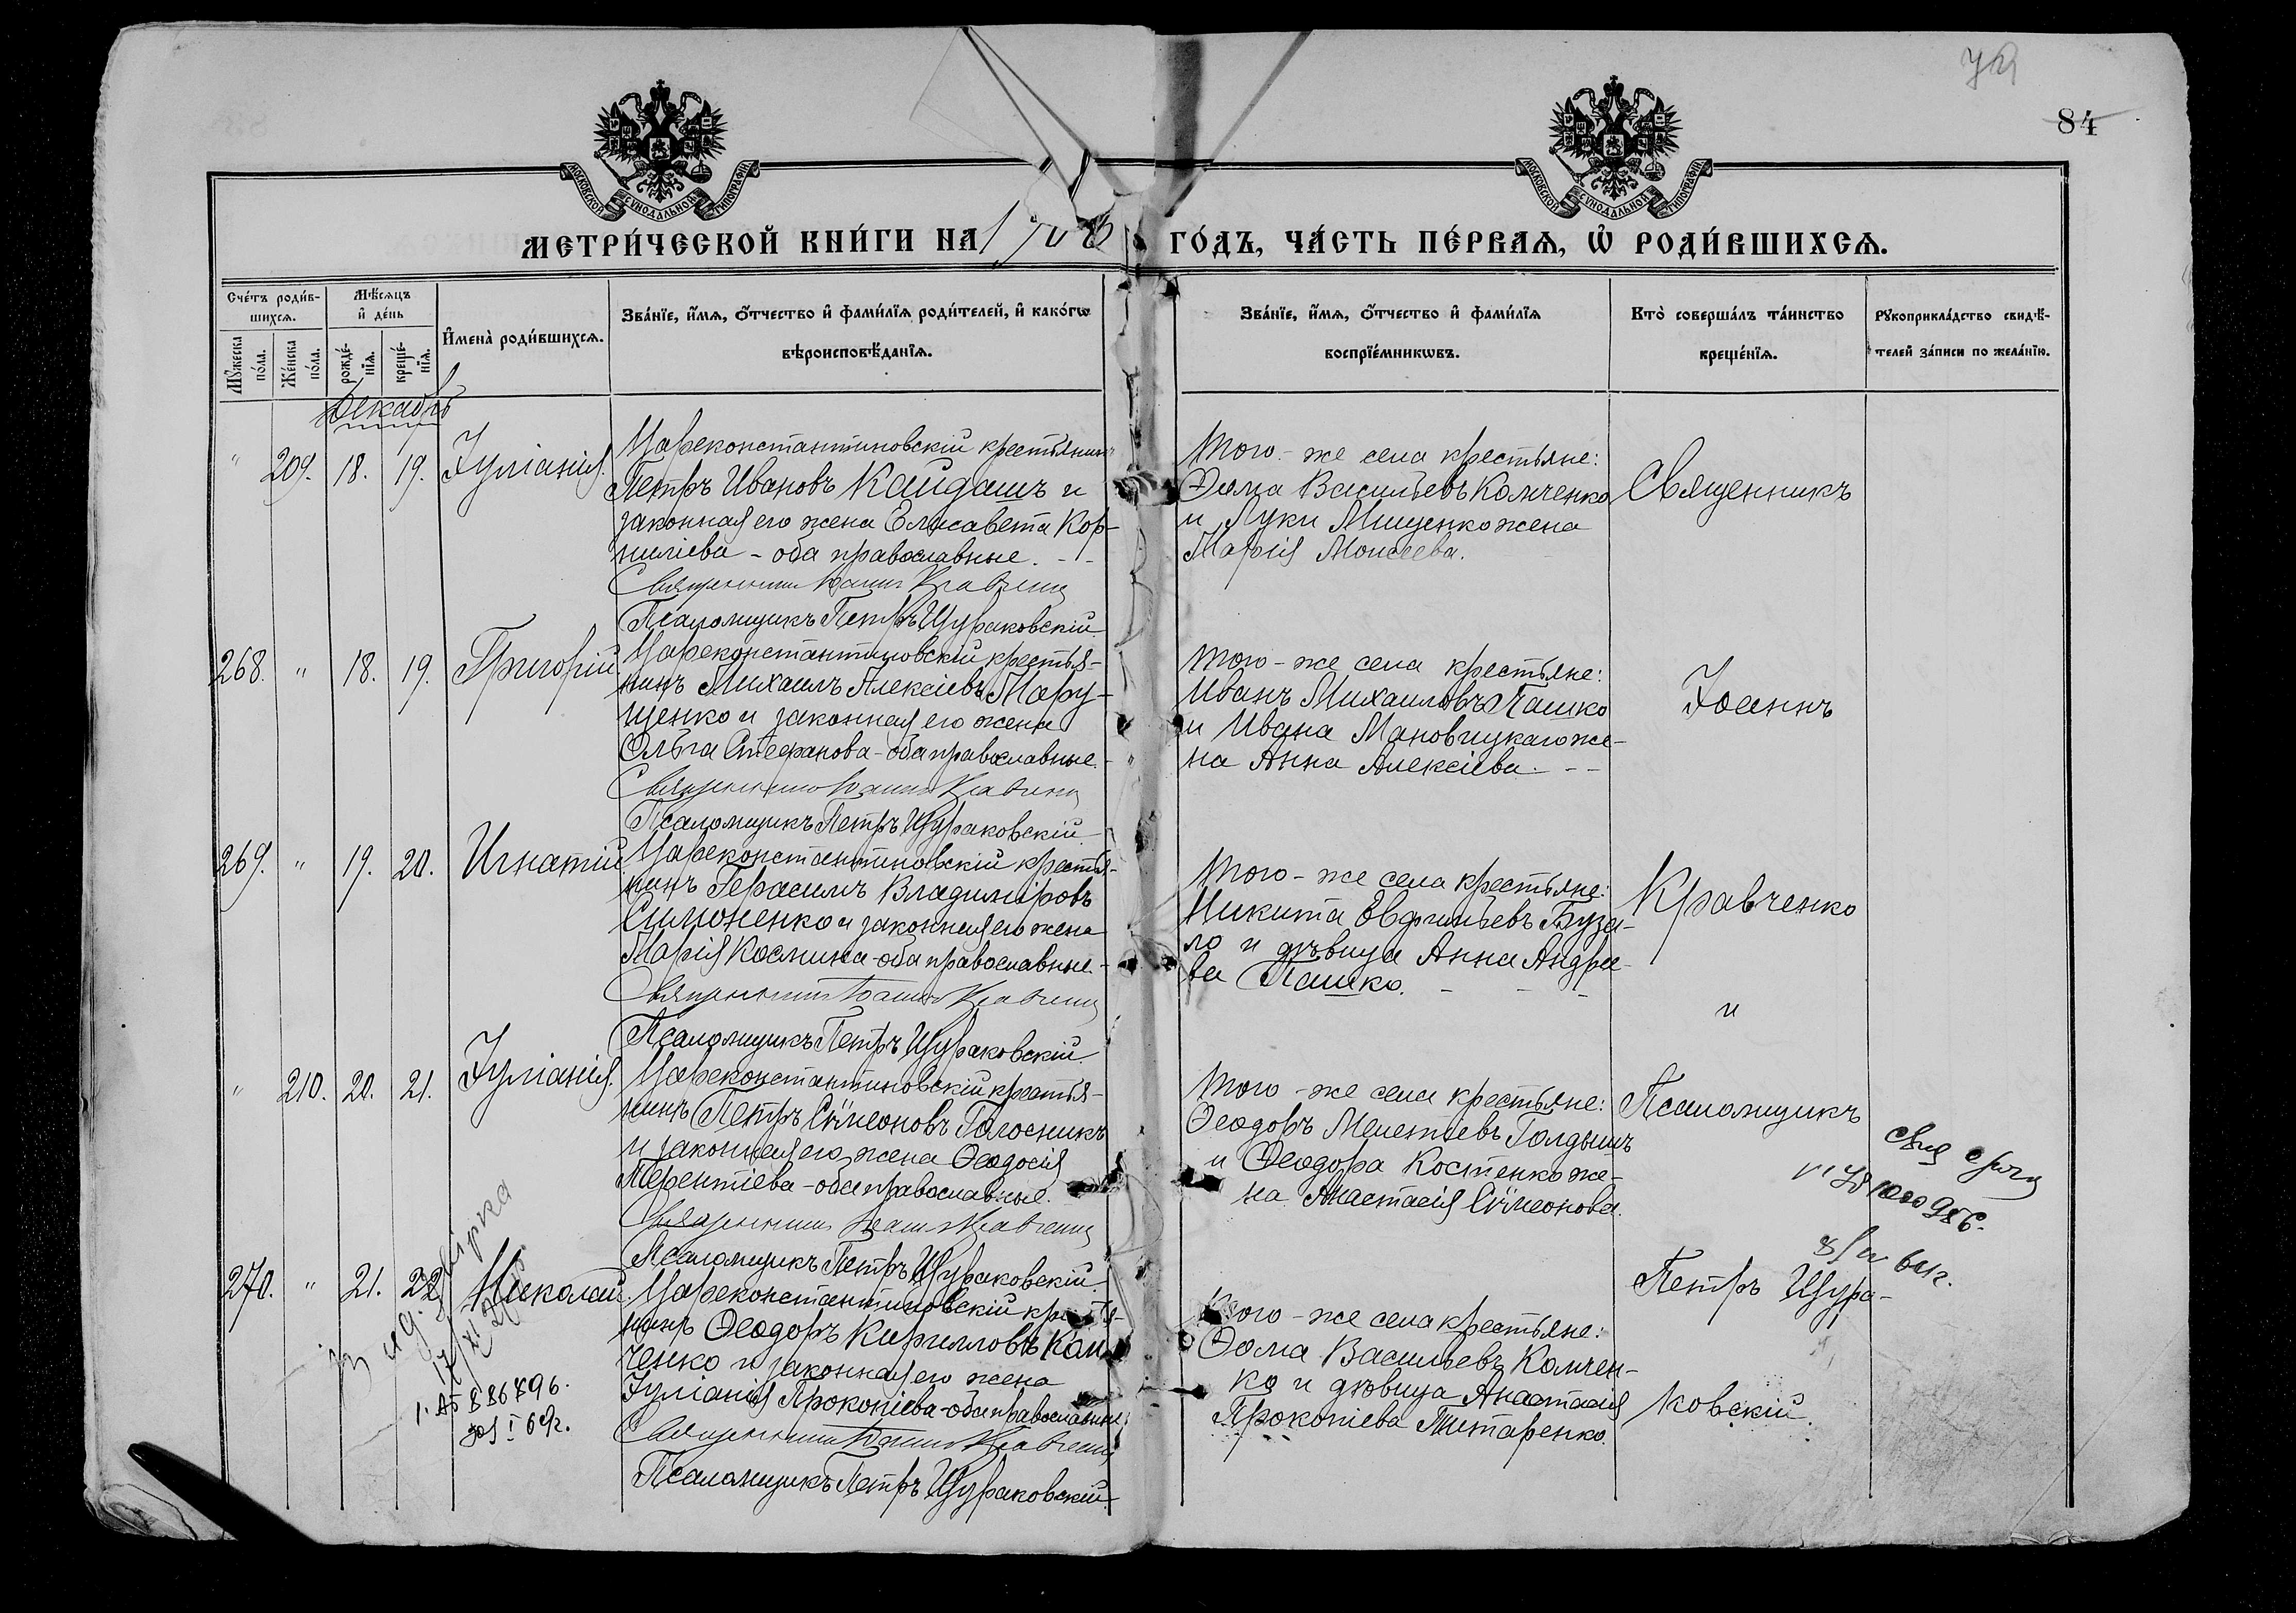 84
МОСКОВСКОЙ СУНОДАЛЬНОЙ ТИПОГРАФІИ
МОСКОВСКОЙ СУНОДАЛЬНОЙ ТИПОГРАФІИ
МЕТРИ́ЧЕСКОЙ КНИ́ГИ НА
ГО́ДЪ, ЧА́СТЬ ПЕ́РВАѦ, Ѡ҆ РОДИ́ВШИХСѦ.
Сче́тъ роди́в-
шихсѧ.
Мѣ́сѧцъ
и҆ де́нь
Мꙋ́жеска
по́ла.
Же́нска
по́ла.
рожде́-
нїѧ.
креще́-
нїѧ.
И҆мена̀ роди́вшихсѧ.
Зва́нїе, и҆́мѧ, ѻ҆́тчество и҆ фами́лїѧ роди́телей, и҆ како́гѡ
вѣроисповѣ́данїѧ.
Зва́нїе, и҆́мѧ, ѻ҆́тчество и҆ фами́лїѧ
воспрїе́мникѡвъ.
Кто̀ соверша́лъ та́инство
креще́нїѧ.
Рꙋкоприкла́дство свидѣ́-
телей за́писи по жела́нїю.
Декабрь
" 209. 18. 19. Іуліанія.
Цареконстантиновскій крестьянинъ
Петръ Ивановъ Кайдашъ и
законная его жена Елисавета Кор-
ниліева - оба православные.
Священникъ Іоаннъ Кравченко
Псаломщикъ Петръ Щураковскій.
Того-же села крестьяне:
Ѳома Васильевъ Камченко
и Луки Мищенко жена
Марія Моисеева.
Священникъ
268. " 18. 19. Григорій
Цареконстантиновскій крестья-
нинъ Михаилъ Алексіевъ Мару-
щенко и законная его жена
Ольга Стефанова - оба православные.
Священникъ Іоаннъ Кравченко
Псаломщикъ Петръ Щураковскій.
Того-же села крестьяне:
Иванъ Михаиловъ Пашко
и Ивана Мановицкаго же-
на Анна Алексіева.
Іоаннъ
269. " 19. 20. Игнатій
Цареконстантиновскій крестья-
нинъ Герасимъ Владиміровъ
Симоненко и законная его жена
Марія Космина - оба православные.
Священникъ Іоаннъ Кравченко
Псаломщикъ Петръ Щураковскій.
Того-же села крестьяне:
Никита Евфиміевъ Буза-
ло и дѣвица Анна Андре-
ва Пашко.
Кравченко
и
" 210. 20. 21. Іуліанія.
Цареконстантиновскій крестья-
нинъ Петръ Сѵмеоновъ Голосникъ
и законная его жена Ѳеодосія
Терентіева - оба православные.
Священникъ Іоаннъ Кравченко
Псаломщикъ Петръ Щураковскій.
Того-же села крестьяне:
Ѳеодоръ Мелетіевъ Голдышъ
и Ѳеодора Костенко же-
на Анастасія Сѵмеонова.
Псаломщикъ
270. " 21. 22. Николай.
Цареконстантиновскій крестья-
нинъ Ѳеодоръ Кирилловъ Кам-
ченко и законная его жена
Іуліанія Прокопіева - оба православные
Священникъ Іоаннъ Кравченко
Псаломщикъ Петръ Щураковскій.
Того-же села крестьяне:
Ѳома Васильевъ Камчен-
ко и дѣвица Анастасія
Прокопіева Титаренко.
Петръ Щура-
ковскій.